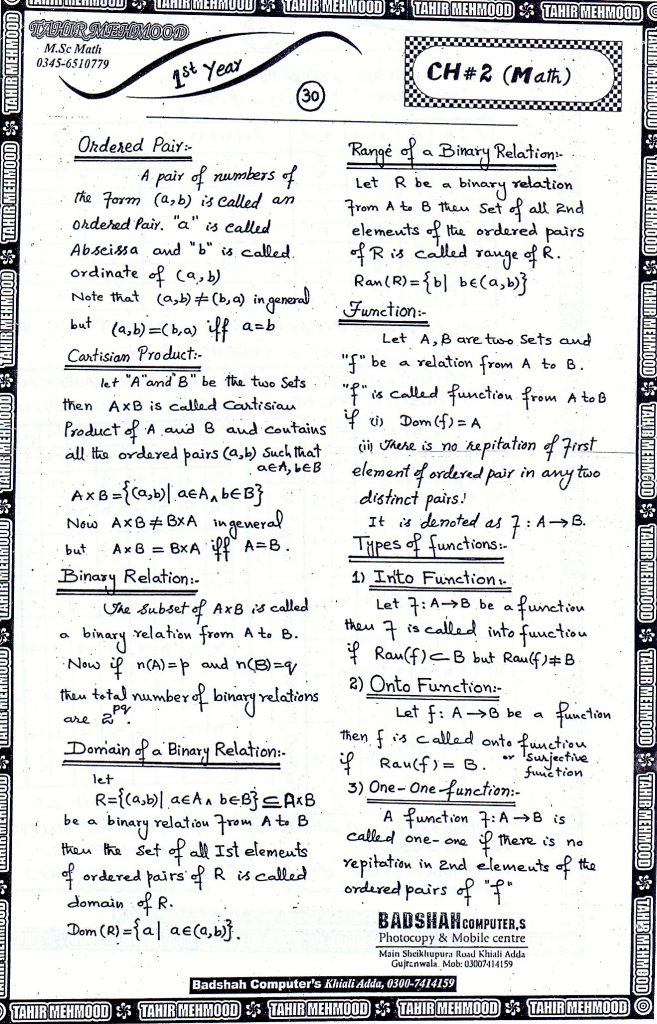 TAHIR MEHMOOD
M.Sc Math
0345-6510779
1st Year
30
CH#2 (Math)
Ordered Pair:-
A pair of numbers of
the form (a,b) is called an
ordered Pair. "a" is called
Abscissa and "b" is called
ordinate of (a,b)
Note that (a,b)≠(b,a) in general
but (a,b)=(b,a) iff a=b
Cartisian Product:-
let "A" and "B" be the two Sets
then A×B is called Cartisian
Product of A and B and contains
all the ordered pairs (a,b) such that
a∈A, b∈B
A×B={(a,b)| a∈A ∧ b∈B}
Now A×B ≠ B×A in general
but A×B = B×A iff A=B.
Binary Relation:-
The subset of A×B is called
a binary relation from A to B.
Now if n(A)=p and n(B)=q
then total number of binary relations
are 2^pq.
Domain of a Binary Relation:-
let
R={(a,b)| a∈A ∧ b∈B} ⊆ A×B
be a binary relation from A to B
then the set of all 1st elements
of ordered pairs of R is called
domain of R.
Dom(R)={a| a∈(a,b)}.
Range of a Binary Relation:-
Let R be a binary relation
from A to B then set of all 2nd
elements of the ordered pairs
of R is called range of R.
Ran(R)={b| b∈(a,b)}
Function:-
Let A,B are two sets and
"f" be a relation from A to B.
"f" is called function from A to B
if (i) Dom(f)=A
(ii) There is no repitation of first
element of ordered pair in any two
distinct pairs.
It is denoted as f: A→B.
Types of functions:-
1) Into Function:-
Let f: A→B be a function
then f is called into function
if Ran(f)⊂B but Ran(f)≠B
2) Onto Function:-
Let f: A→B be a function
then f is called onto function
if Ran(f) = B. or surjective
function
3) One-One-function:-
A function f: A→B is
called one-one if there is no
repitation in 2nd elements of the
ordered pairs of "f"
BADSHAH COMPUTER,S
Photocopy & Mobile centre
Main Sheikhupura Road Khiali Adda
Gujranwala. Mob: 03007414159
Badshah Computer's Khiali Adda, 0300-7414159
TAHIR MEHMOOD TAHIR MEHMOOD TAHIR MEHMOOD TAHIR MEHMOOD TAHIR MEHMOOD